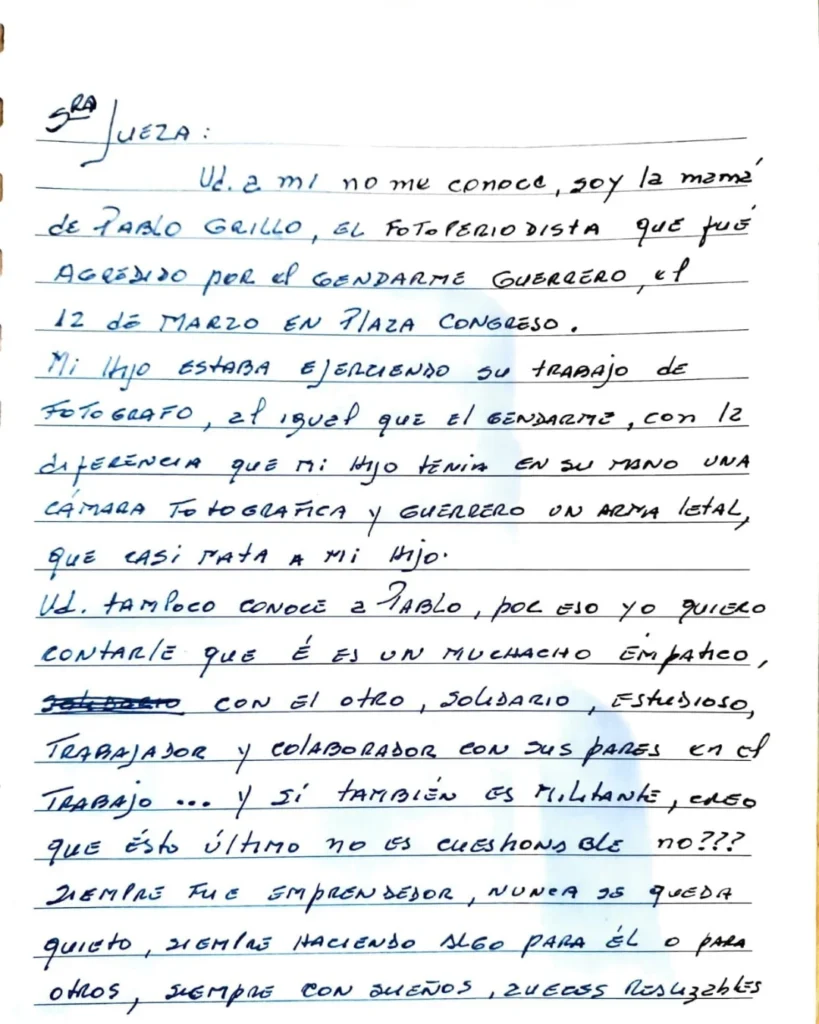 SRA JUEZA:
Ud. a mi no me conoce, soy la mamá
de PABLO GRILLO, EL FOTOPERIODISTA que fué
AGREDIDO por el GENDARME GUERRERO, el
12 de MARZO EN PlAZA CONGRESO.
Mi Hijo ESTABA EJERCIENDO su tRABAjo de
FOTOGRAFO, al igual que El GENDARME, con la
diFERENCIA que mi Hijo tENIA EN SU MANO UNA
CÁMARA FOtOGRAFICA y GUERRERO UN ARMA letAL,
que CASI MAtA A MI Hijo.
Ud. tAMPoco CONOCE a PABLO, por ESO yo quiERO
CONtARlE que É ES UN MUCHACHO EMPAtICO,
SOLIDARIO CON El OtRO, SOLIDARIO, EStUDIOSO,
TRABAJADOR y COlABORADOR CON SUS PARES en el
TRABAJO ... y SÍ tAMBIÉN ES MILItANtE, CREO
que ésto últIMO no ES CUEStIONABLE no???
SIEMPRE FUE EMPRENDEDOR, NUNCA SE QUEDA
quiEtO, SIEMPRE HACIENDO ALGO PARA ÉL O PARA
OtROS, SIEMPRE CON SUEÑOS, REALIZABLES